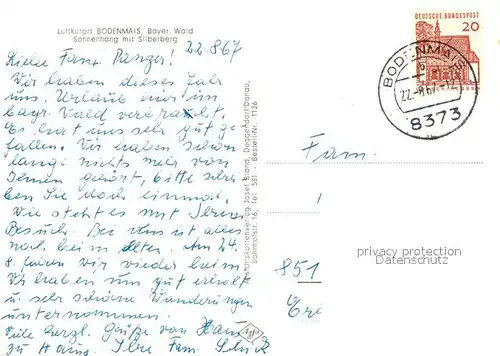 Luftkurort BODENMAIS, Bayer. Wald
Sonnenhang mit Silberberg
22.8.67
Liebe Fam. Panzer!
Wir haben dieses Jahr
uns. Urlaub nur im
bayr. Wald verbracht.
Es hat uns sehr gut ge
fallen. Wir haben schon
lange nichts mehr von
Ihnen gehört, bitte schrei
ben Sie doch einmal,
wie steht es mit Ihrem
Besuch. Bei uns ist alles
noch beim Alten. Am 24.
8. fahren wir wieder heim
Wir haben uns gut erholt
u. sehr schöne Wanderungen
unternommen.
Viele herzl. Grüße von Haus
zu Haus. Ihre Fam.
Ansichtskartenverlag Josef Bland, Deggendorf/Donau,
Bahnhofstr. 16, Tel. 551 - Bestell-Nr. 1126
DEUTSCHE BUNDESPOST
20
BODENMAIS
22.-8.67
8373
Fam.
851
privacy protection
Datenschutz